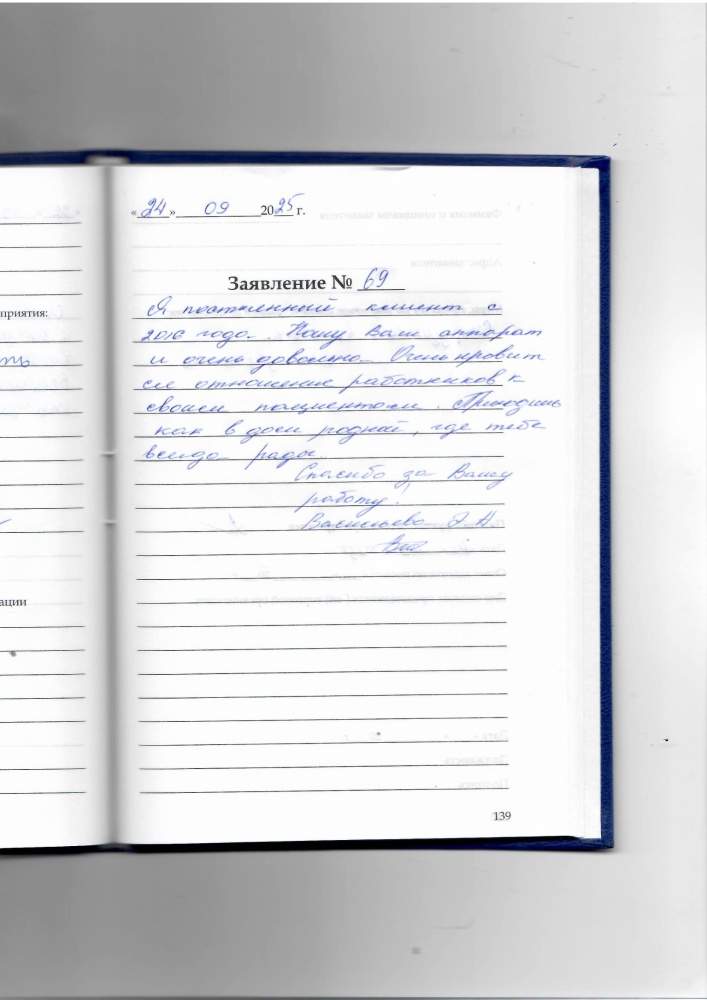 «24» 09 2025 г.
Заявление № 69
Я постоянный клиент с
2016 года. Ношу Ваш аппарат
и очень довольна. Очень нравит
ся отношение работников к
своим пациентам. Приходишь
как в дом родной, где тебе
всегда рады
Спасибо за Вашу
работу!
Васильева Э. Н.
приятия:
ть
ации
139